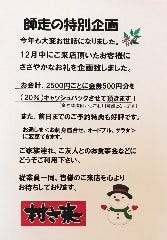 師走の特別企画
今年も大変お世話になりました。
12月中にご来店頂いたお客様に
ささやかなお礼を企画致しました。
お会計、2500円ごとに金券500円分を
(20%)キャッシュバックさせて頂きます!
また、前日までのご予約特典も好評です。
お通しまぐろお刺身
ご家族連れ、ご友人とのお食事会などに
どうぞご利用下さい、
従業員一同、皆様のご来店を心より
お待ちしております。
村さ来